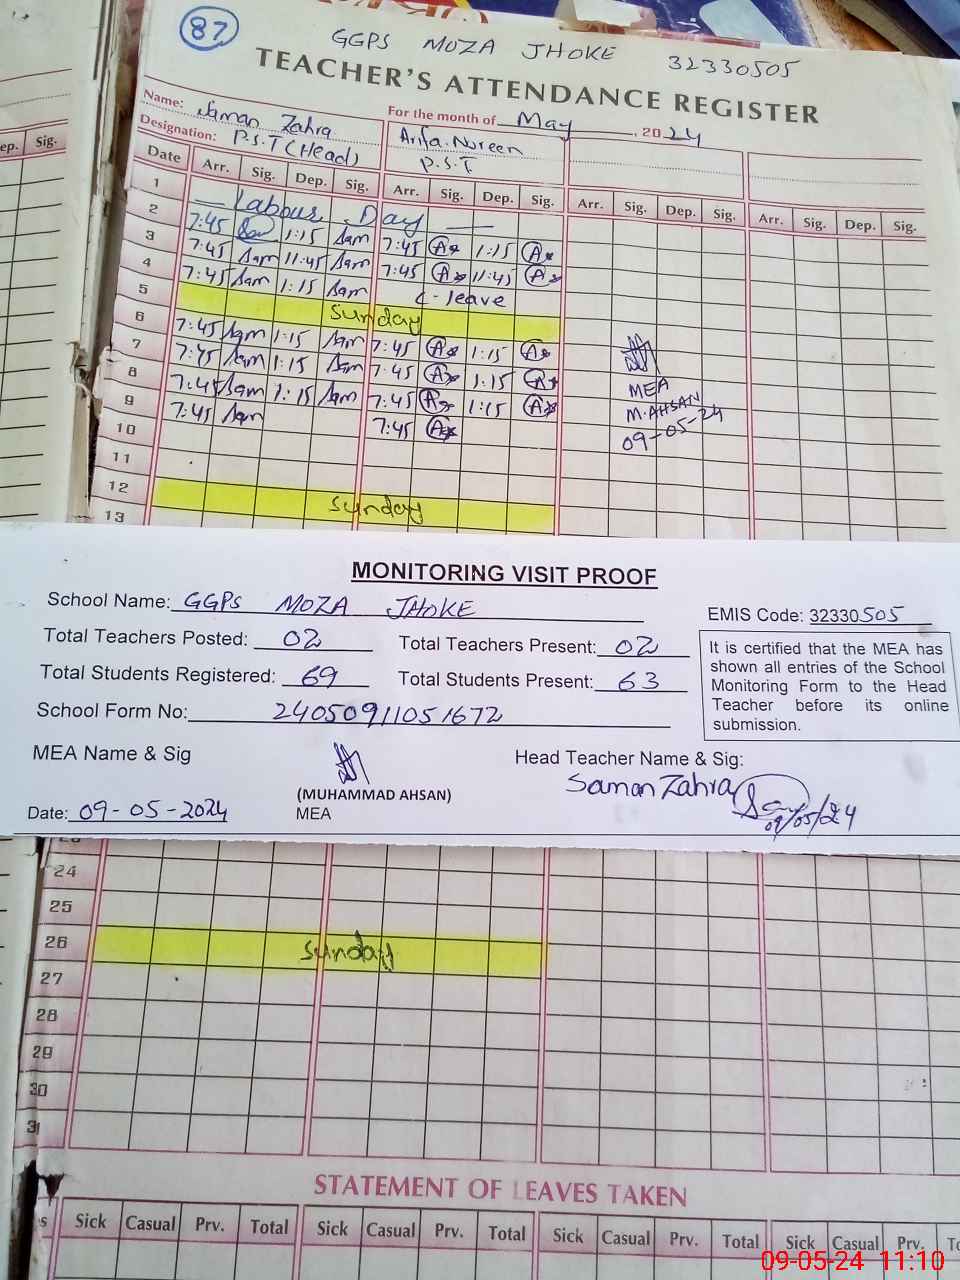 87
GGPS MOZA JHOKE 32330505
TEACHER'S ATTENDANCE REGISTER
Name: Saman Zahra For the month of May, 2024
Designation: P.S.T (Head) Arifa Noreen
P.S.T.
Date Arr. Sig. Dep. Sig. Arr. Sig. Dep. Sig. Arr. Sig. Dep. Sig. Arr. Sig. Dep. Sig.
1 Labour Day
2 7:45 1:15 Sam 7:45 A 1:15 A
3 7:45 Sam 11:45 Sam 7:45 A 11:45 A
4 7:45 Sam 1:15 Sam C-leave
5 Sunday
6 7:45 Sam 1:15 Sam 7:45 A 1:15 A
7 7:45 Sam 1:15 Sam 7:45 A 1:15 A
8 7:45 Sam 1:15 Sam 7:45 A 1:15 A
9 7:45 Sam 7:45 A
MEA
M. AHSAN
09-05-24
10
11
12 Sunday
13
MONITORING VISIT PROOF
School Name: GGPS MOZA JHOKE EMIS Code: 32330505
Total Teachers Posted: 02 Total Teachers Present: 02
Total Students Registered: 69 Total Students Present: 63
School Form No: 24050911051672
It is certified that the MEA has
shown all entries of the School
Monitoring Form to the Head
Teacher before its online
submission.
MEA Name & Sig Head Teacher Name & Sig:
Saman Zahra
(MUHAMMAD AHSAN) 09/05/24
Date: 09-05-2024 MEA
24
25
26 Sunday
27
28
29
30
31
STATEMENT OF LEAVES TAKEN
Sick Casual Prv. Total Sick Casual Prv. Total Sick Casual Prv. Total Sick Casual Prv.
09-05-24 11:10
ep. Sig.